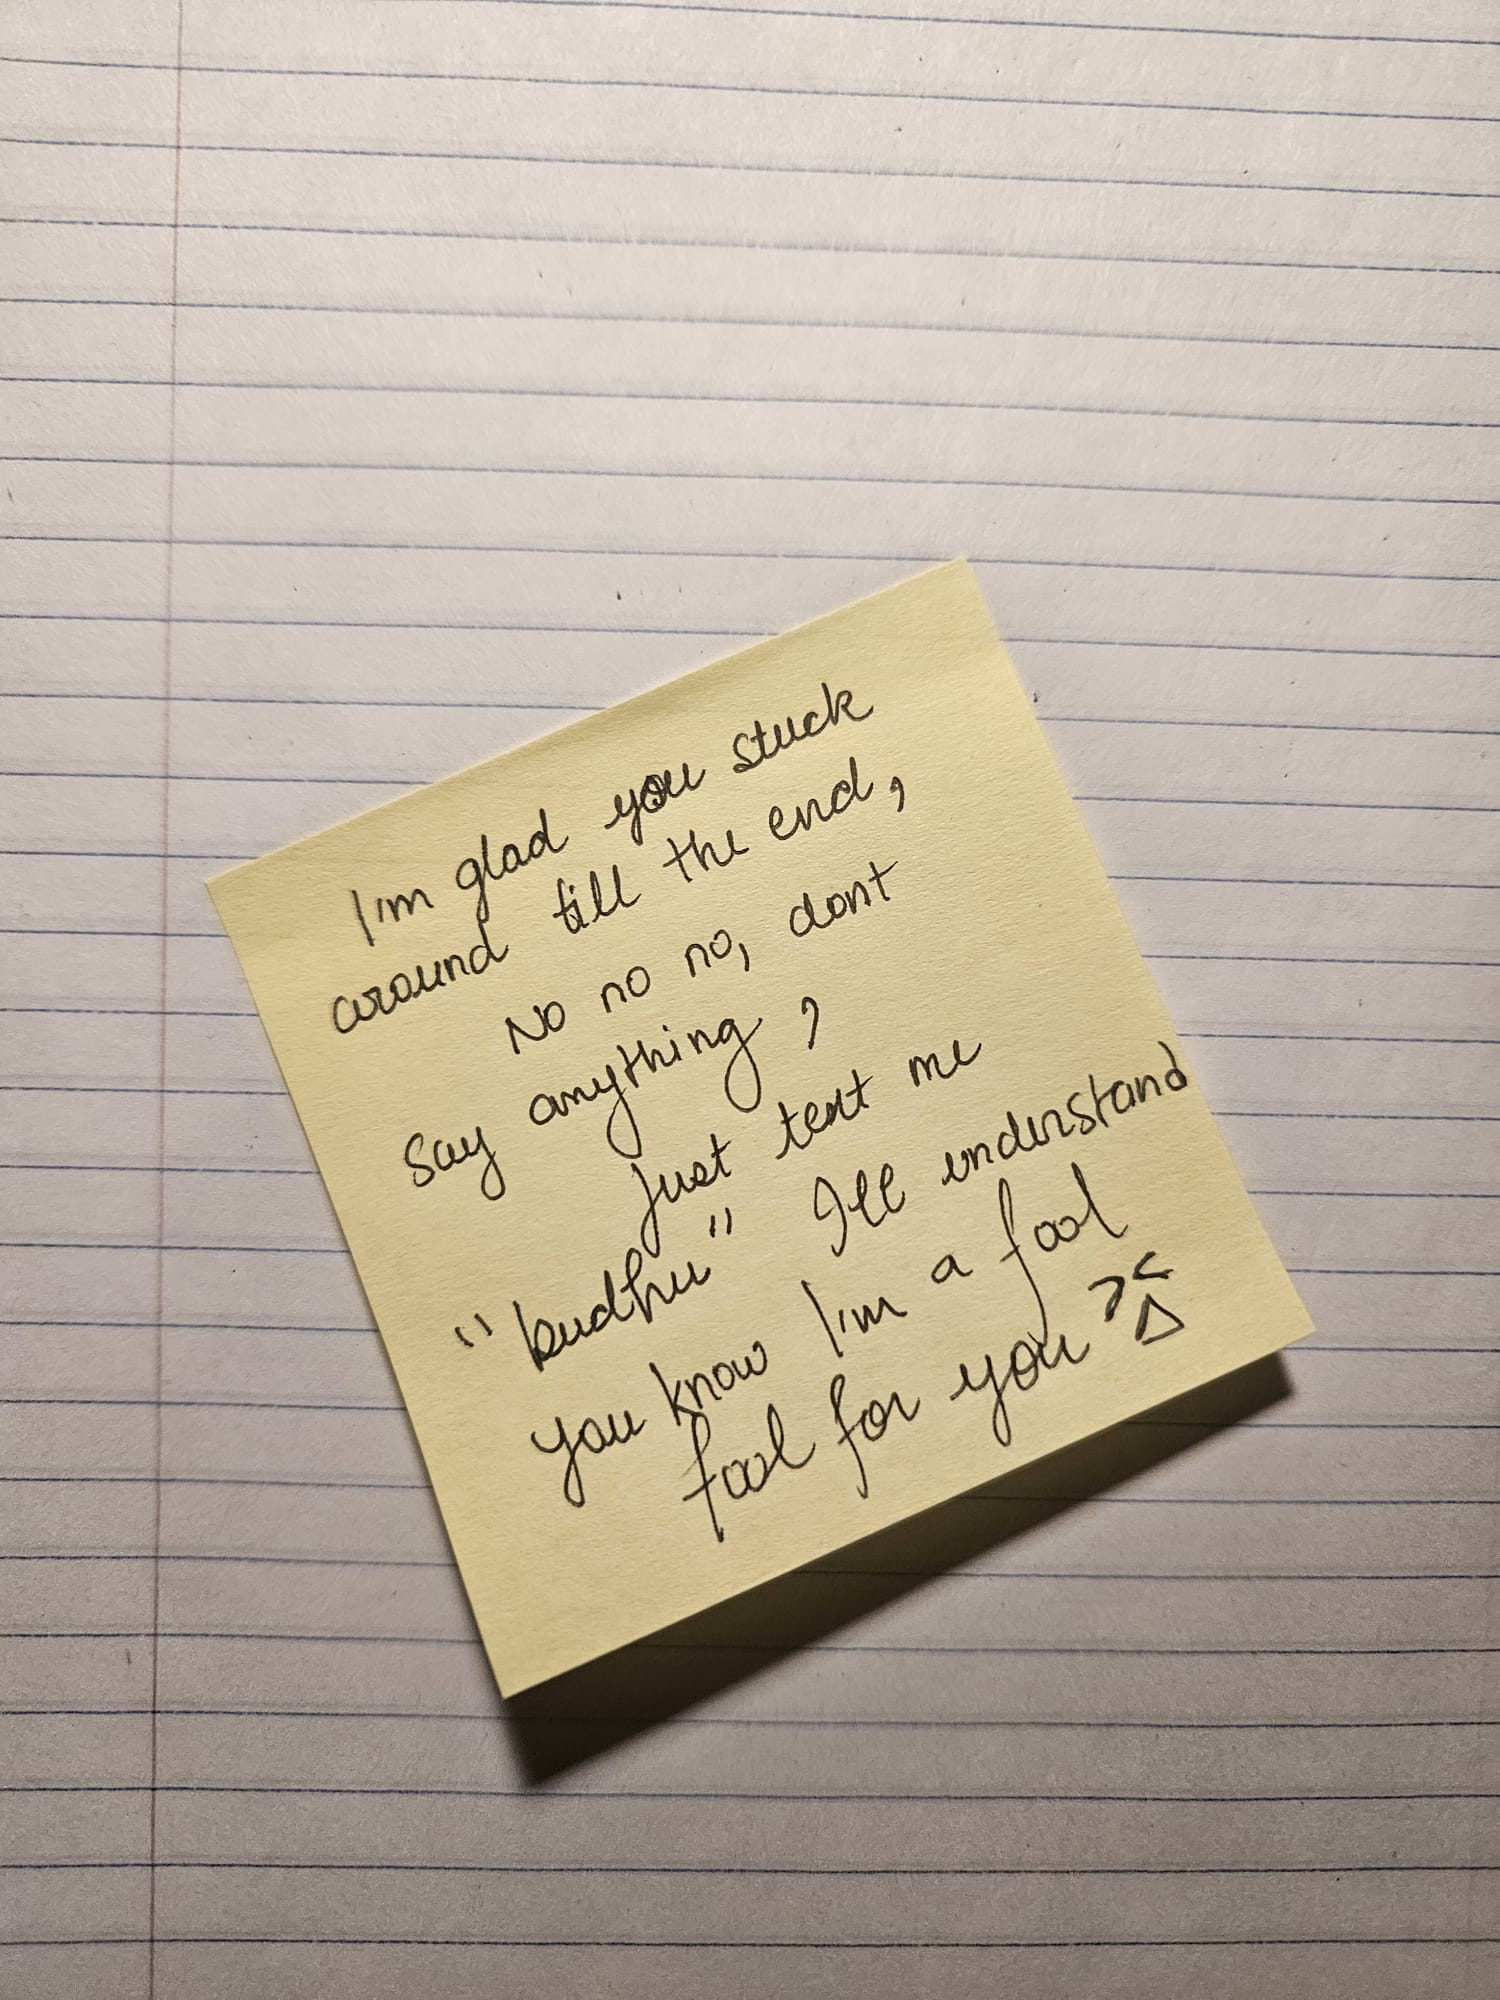 I'm glad you stuck
around till the end,
No no no, dont
say anything,
just text me
"budhu" Ill understand
you know I'm a fool
fool for you